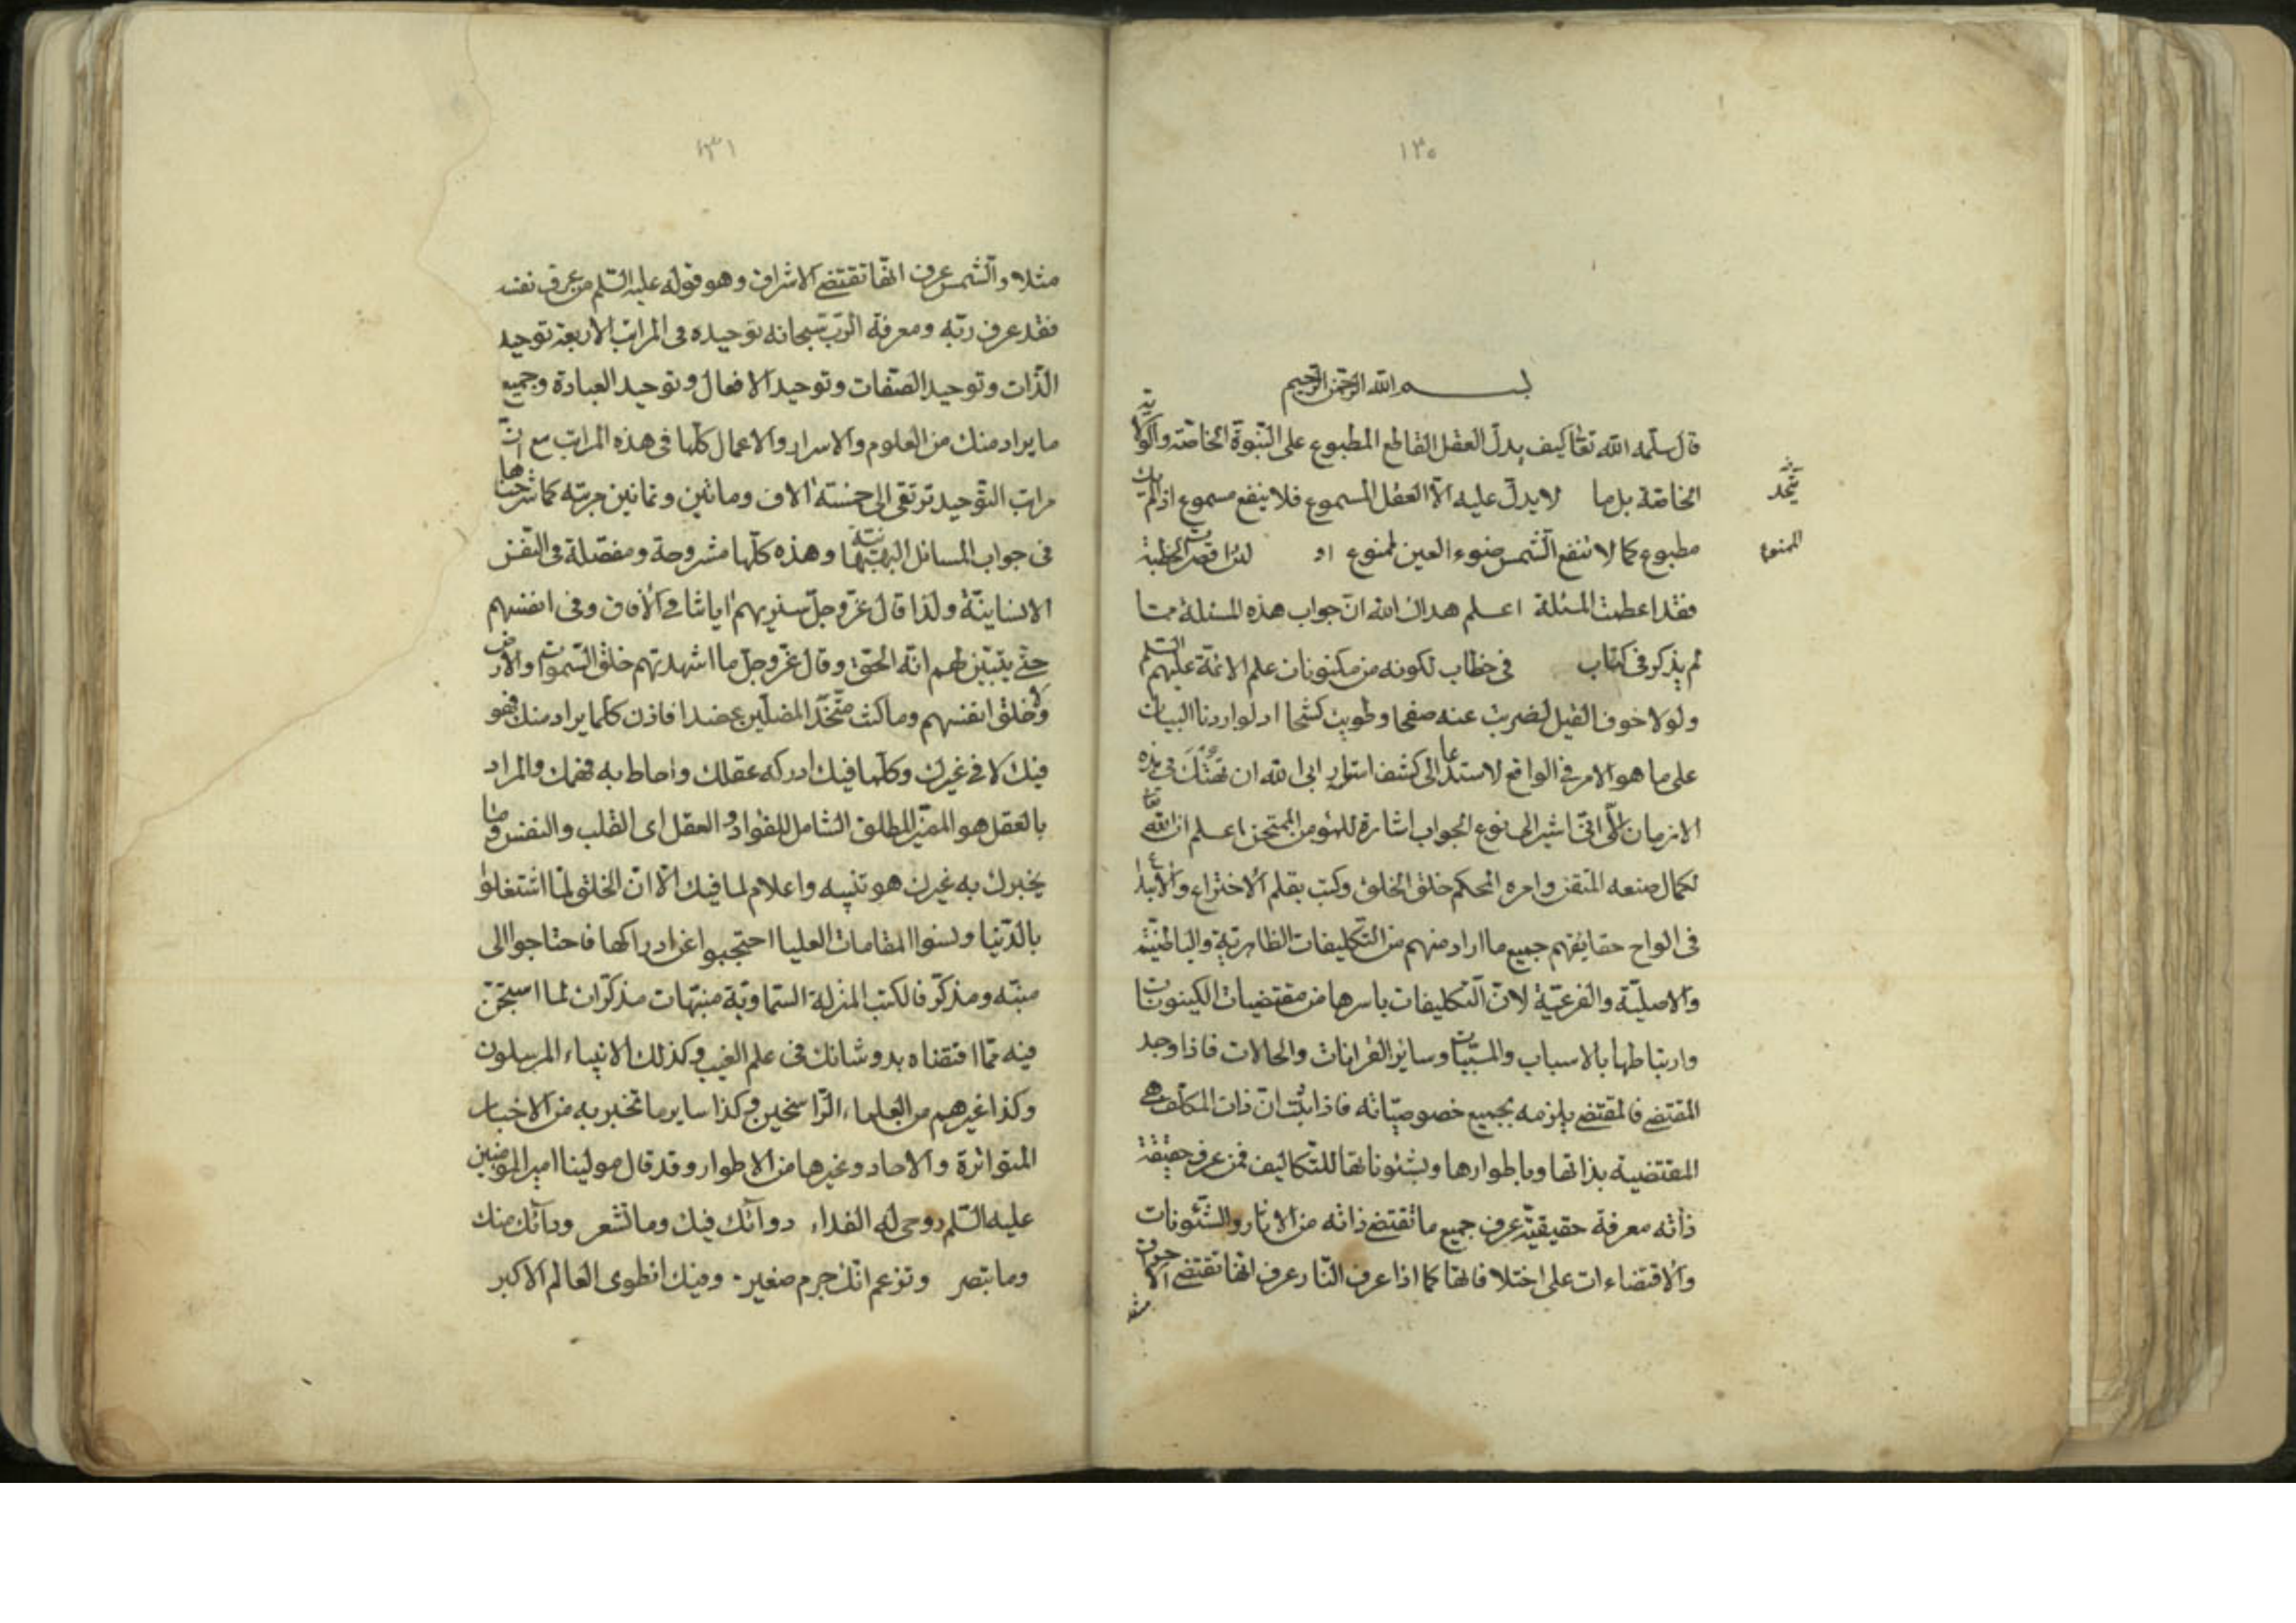 ١٣٠
بسم الله الرحمن الرحيم
قال سلمه الله تعا كيف يدل العقل القاطع المطبوع على النبوة الخاصة والولاية
الخاصة بل ما لا يدل عليه الا العقل المسموع فلا ينفع مسموع اذا لم يك
مطبوع كما لا تنفع الشمس ضوء العين ممنوع
الممنوع
فقد اعطت المسئلة اعلم هداك الله ان جواب هذه المسئلة مما
لم يذكر فى كتاب فى خطاب لكونه من مكنونات علم الائمة عليهم السلم
ولولا خوف القيل لضربت عنه صفحا وطويت كشحا اذ لو اردنا البيان
على ما هو الامر فى الواقع لاستدعا الى كشف اسرار ابى الله ان فى هذه
الازمان الا انى اشير الى نوع الجواب اشارة للمؤمن الممتحن اعلم ان الله تعا
لكمال صنعه المتقن وامره المحكم خلق الخلق وكتب بقلم الاختراع والابداع
فى الواح حقايقهم جميع ما اراد منهم من التكليفات الظاهرية والباطنية
والاصلية والفرعية لان التكليفات باسرها من مقتضيات الكينونات
وارتباطها بالاسباب والمسببات وساير القرانات والحالات فاذا وجد
المقتضى فالمقتضى يلزمه بجميع خصوصياته فاذا ثبت ان ذات المكلف هى
المقتضية بذاتها وباطوارها وبشئوناتها للتكاليف فمن عرف حقيقة
ذاته معرفة حقيقية عرف جميع ما تقتضى ذاته من الاثار والشئونات
والاقتضاءات على اختلافاتها كما اذا عرف النار عرف انها تقتضى الاحراق
مثلا
١٣١
مثلا والشمس عرف انها تقتضى الاشراق وهو قوله عليه السلم من عرف نفسه
فقد عرف ربه ومعرفة الرب سبحانه توحيده فى المراتب الاربعة توحيد
الذات وتوحيد الصفات وتوحيد الافعال وتوحيد العبادة وجميع
ما يراد منك من العلوم والاسرار والاعمال كلها فى هذه المراتب مع ان
مراتب التوحيد ترتقى الى خمسة الاف ومائتين وثمانين مرتبة كما شرحناها
فى جواب المسائل البهبهانية وهذه كلها مشروحة ومفصلة فى النفس
الانسانية ولذا قال عز وجل سنريهم اياتنا فى الافاق وفى انفسهم
حتى يتبين لهم انه الحق وقال عز وجل ما اشهدتهم خلق السموات والارض
ولا خلق انفسهم وما كنت متخذ المضلين عضدا فاذن كلما يراد منك فهو
فيك لا فى غيرك وكلما فيك ادركه عقلك واحاط به فهمك والمراد
بالعقل هو المميز المطلق الشامل للفؤاد والعقل اى القلب والنفس وما
يخبرك به غيرك هو تنبيه واعلام لما فيك الا ان الخلق لما اشتغلوا
بالدنيا ونسوا المقامات العليا احتجبوا عن ادراكها فاحتاجوا الى
منبه ومذكر فالكتب المنزلة السماوية منبهات مذكرات لما استجن
فيه مما اقتضاه بدو شانك فى علم الغيب وكذلك الانبياء المرسلون
وكذا غيرهم من العلماء الراسخين وكذا ساير ما تخبر به من الاخبار
المتواترة والاحاد وغيرها من الاطوار وقد قال مولينا امير المومنين
عليه السلم روحى له الفداء دوائك فيك وما تشعر ودائك منك
وما تبصر وتزعم انك جرم صغير وفيك انطوى العالم الاكبر